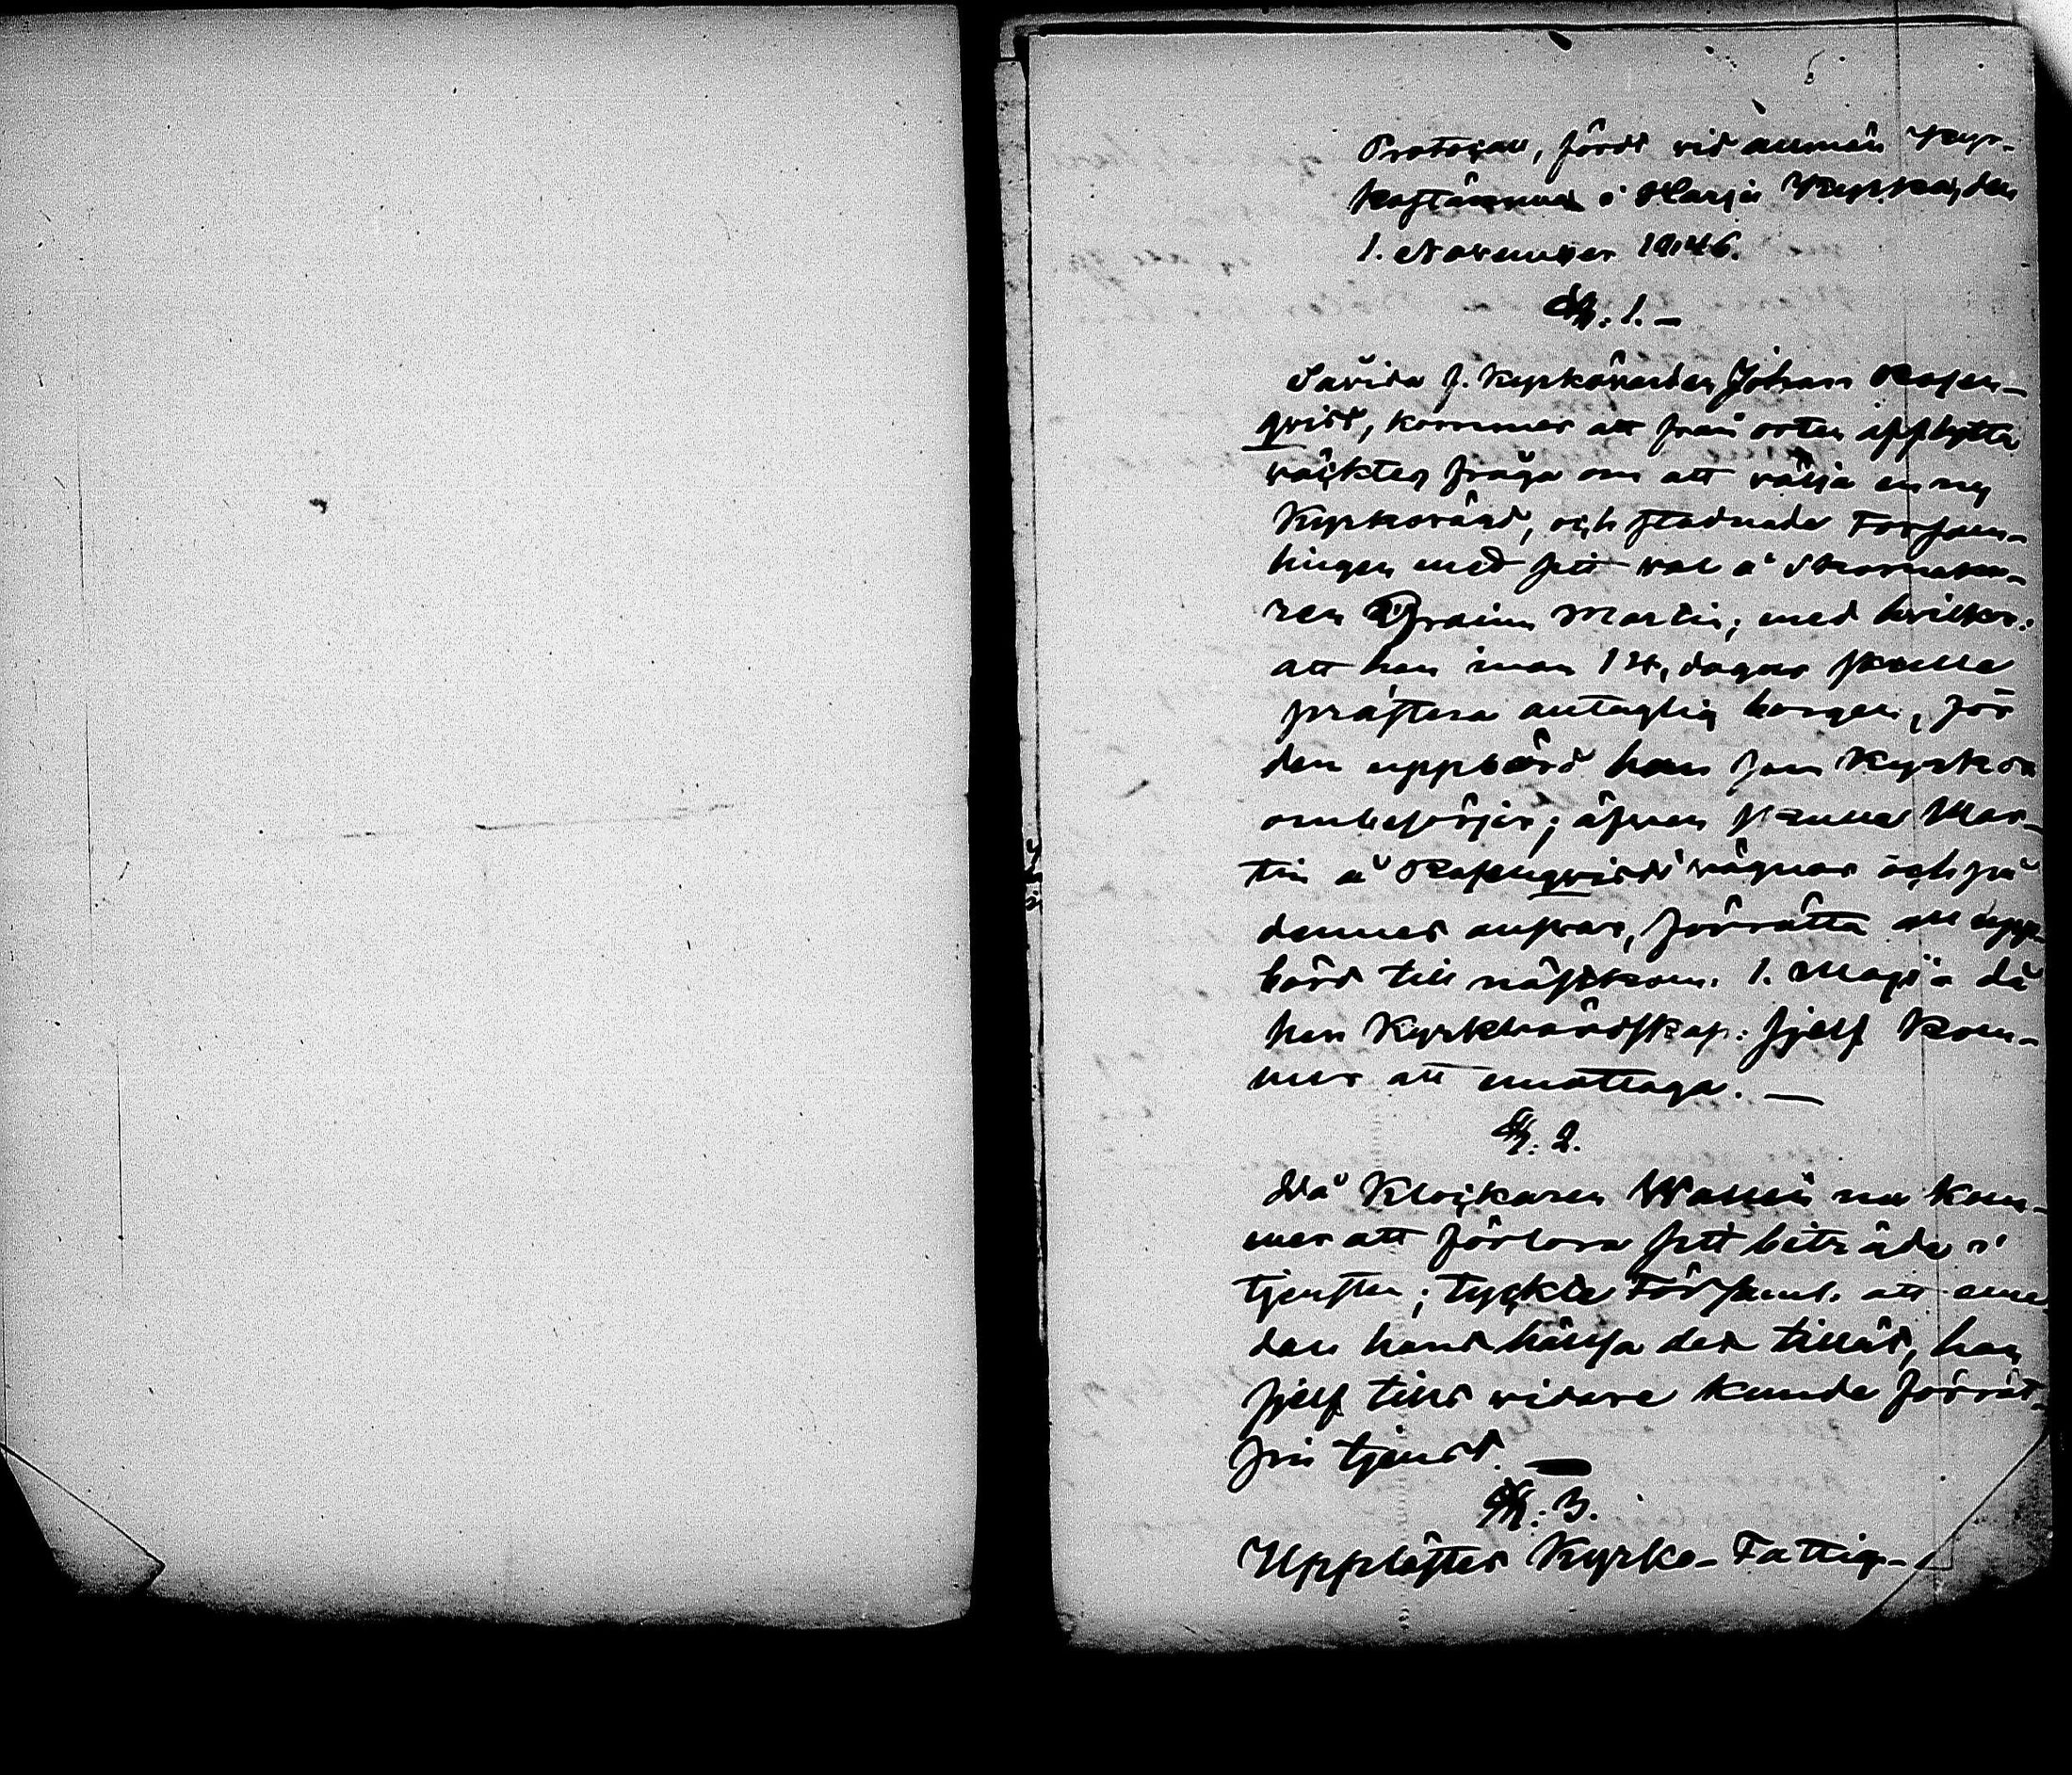 Protocoll, fördt vid allmän Kyr-
kostämma i Karja Kyrka, den
1. November 1846.
§: 1. —
Såvida f. Kyrkovärden Johan Rosen-
qvist, kommer att från orten afflytta
väcktes fråga om att välja en ny
Kyrkovärd, och stadnade Försam-
lingen med sitt val å
ren Efraim Martin; med vilkor:
att han inom 14. dagar skulle
præstera antaglig borgen, för
den uppbörd han som Kyrkov.
ombesörjer; äfven skulle Mar-
tin å Rosenqvists vägnar och på
dennes ansvar, förrätta all upp-
börd till nästkom. 1. Maji då
han Kyrkvärdskap: sjelf kom-
mer att emottaga. —
§: 2.
Då Klockaren Wallin nu kom-
mer att förlora sitt biträde i
tjensten; tyckte Församl. att eme
dan hans hälsa det tillät, han
sjelf tills vidare kunde förrät-
sin tjenst. —
§: 3.
Upplästes Kyrko- Fattig-